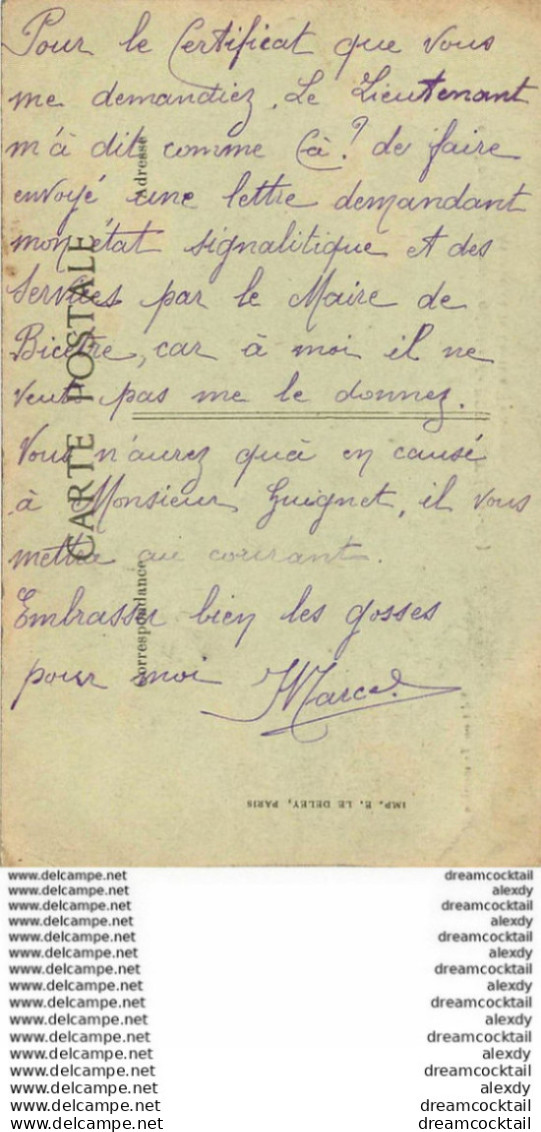 Pour le Certificat que vous
me demandiez. Le Lieutenant
m'à dit comme Çà? de faire
envoyé une lettre demandant
mon état signalitique et des
Services par le Maire de
Bicetre, car à moi il ne
veut pas me le donnez.
Vous n'aurez qu'à en causé
à Monsieur Guignet, il vous
mettra au courant.
Embrasser bien les gosses
pour moi Marcel
CARTE POSTALE
Correspondance
Adresse
IMP. E. LE DELEY, PARIS
www.delcampe.net dreamcocktail
www.delcampe.net alexdy
www.delcampe.net dreamcocktail
www.delcampe.net alexdy
www.delcampe.net dreamcocktail
www.delcampe.net alexdy
www.delcampe.net dreamcocktail
www.delcampe.net alexdy
www.delcampe.net dreamcocktail
www.delcampe.net alexdy
www.delcampe.net dreamcocktail
www.delcampe.net alexdy
www.delcampe.net dreamcocktail
www.delcampe.net alexdy
www.delcampe.net dreamcocktail
www.delcampe.net dreamcocktail